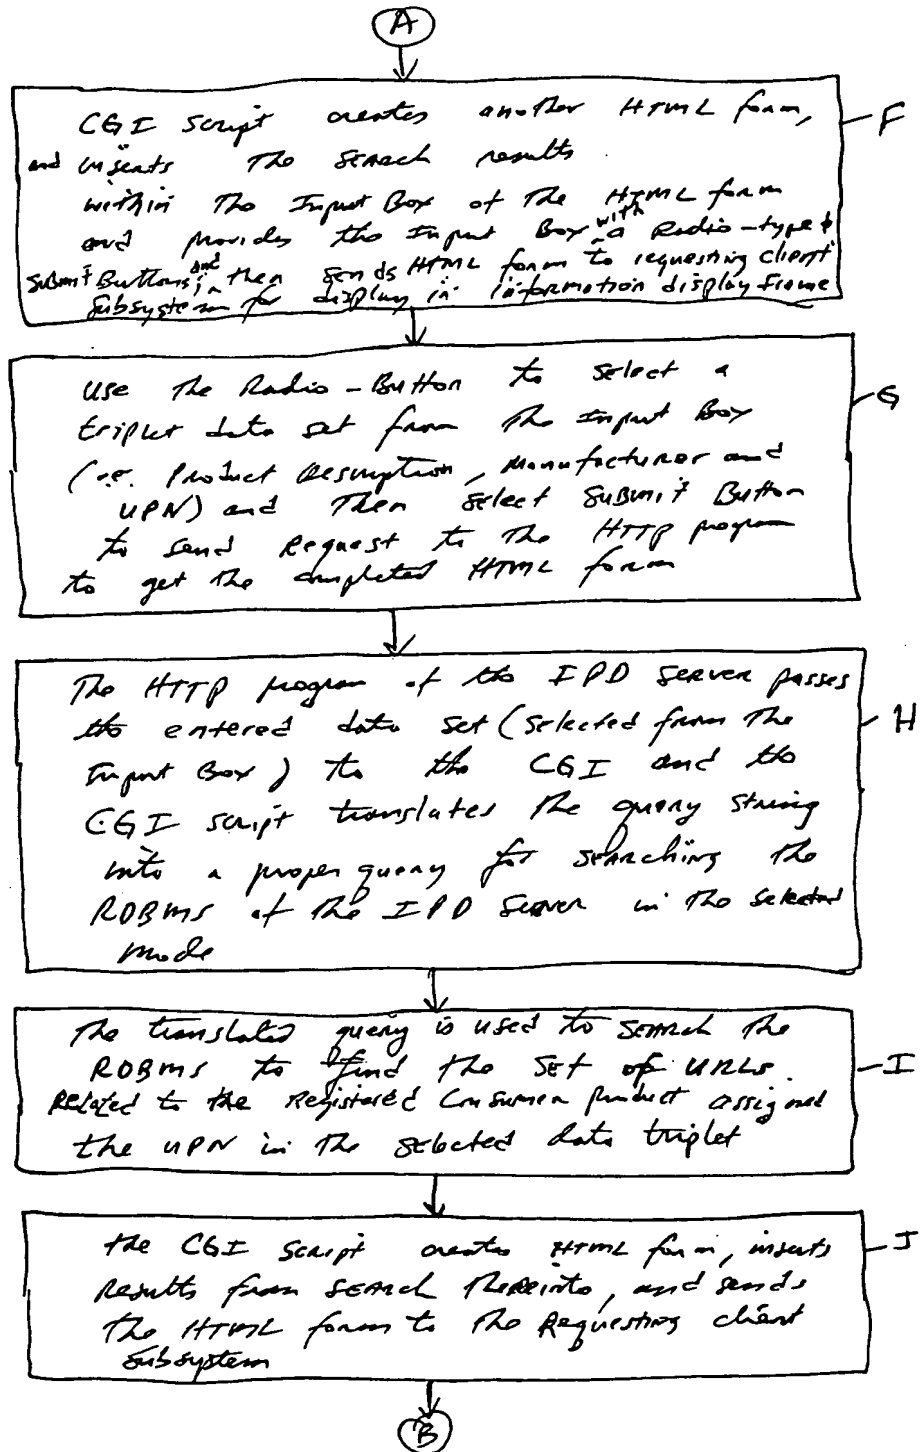 A
CGI Script creates another HTML form,
and inserts The SEARCH results
within The Input Box of The HTML form
and provides the Input Box with a Radio-type &
Submit Buttons; and then sends HTML form to requesting client
Subsystem for display in information display frame
F
use The Radio-Button to select a
triplet data set from The Input Box
(i.e. Product Description, Manufacturer and
UPN) and Then select Submit Button
to send Request to The HTTP program
to get the completed HTML form
G
The HTTP program of the IPD Server passes
the entered data set (selected from The
Input Box) to the CGI and the
CGI script translates The query string
into a proper query for searching The
RDBMS of The IPD Server in The selected
mode
H
The translated query is used to SEARCH The
RDBMS to find the SET of URLs
Related to the Registered Consumer product assigned
the UPN in The selected data triplet
I
the CGI Script creates HTML form, inserts
Results from SEARCH Thereinto, and sends
The HTML form to The Requesting client
Subsystem
J
B